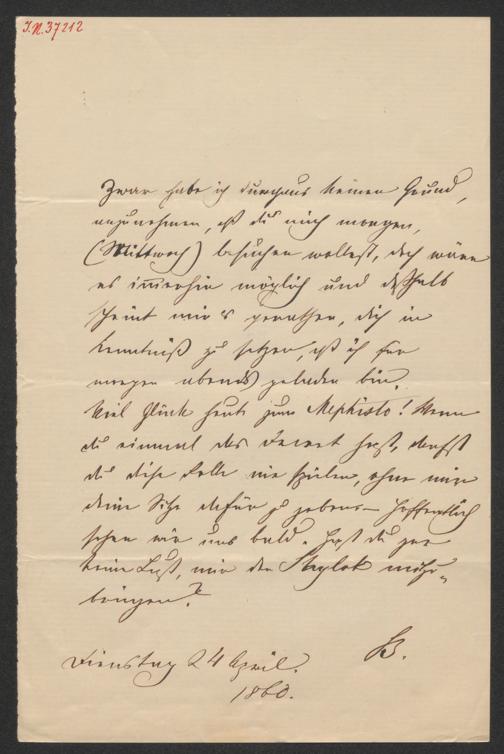 I.N. 37212
Zwar habe ich durchaus keinen Grund,
anzunehmen, daß du mich morgen,
(Mittwoch) besuchen wollest, doch wäre
es immerhin möglich und deßhalb
scheint mir's gerathen, dich in
Kenntniß zu setzen, daß ich für
morgen abends geladen bin.
Viel Glück heute zum Mephisto! Wenn
du einmal das Decret hast, darfst
du diese Rolle nie spielen, ohne mir
deine Sitze dafür zu geben – Hoffentlich
sehen wir uns bald. Hast du gar
keine Lust, mir den Shylok mitzu-
bringen?
B.
Dienstag 24 April.
1860.